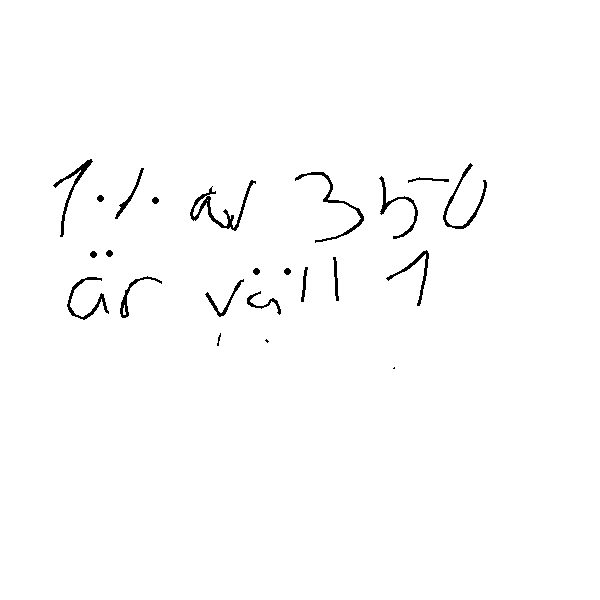 1% av 350
är väll 1